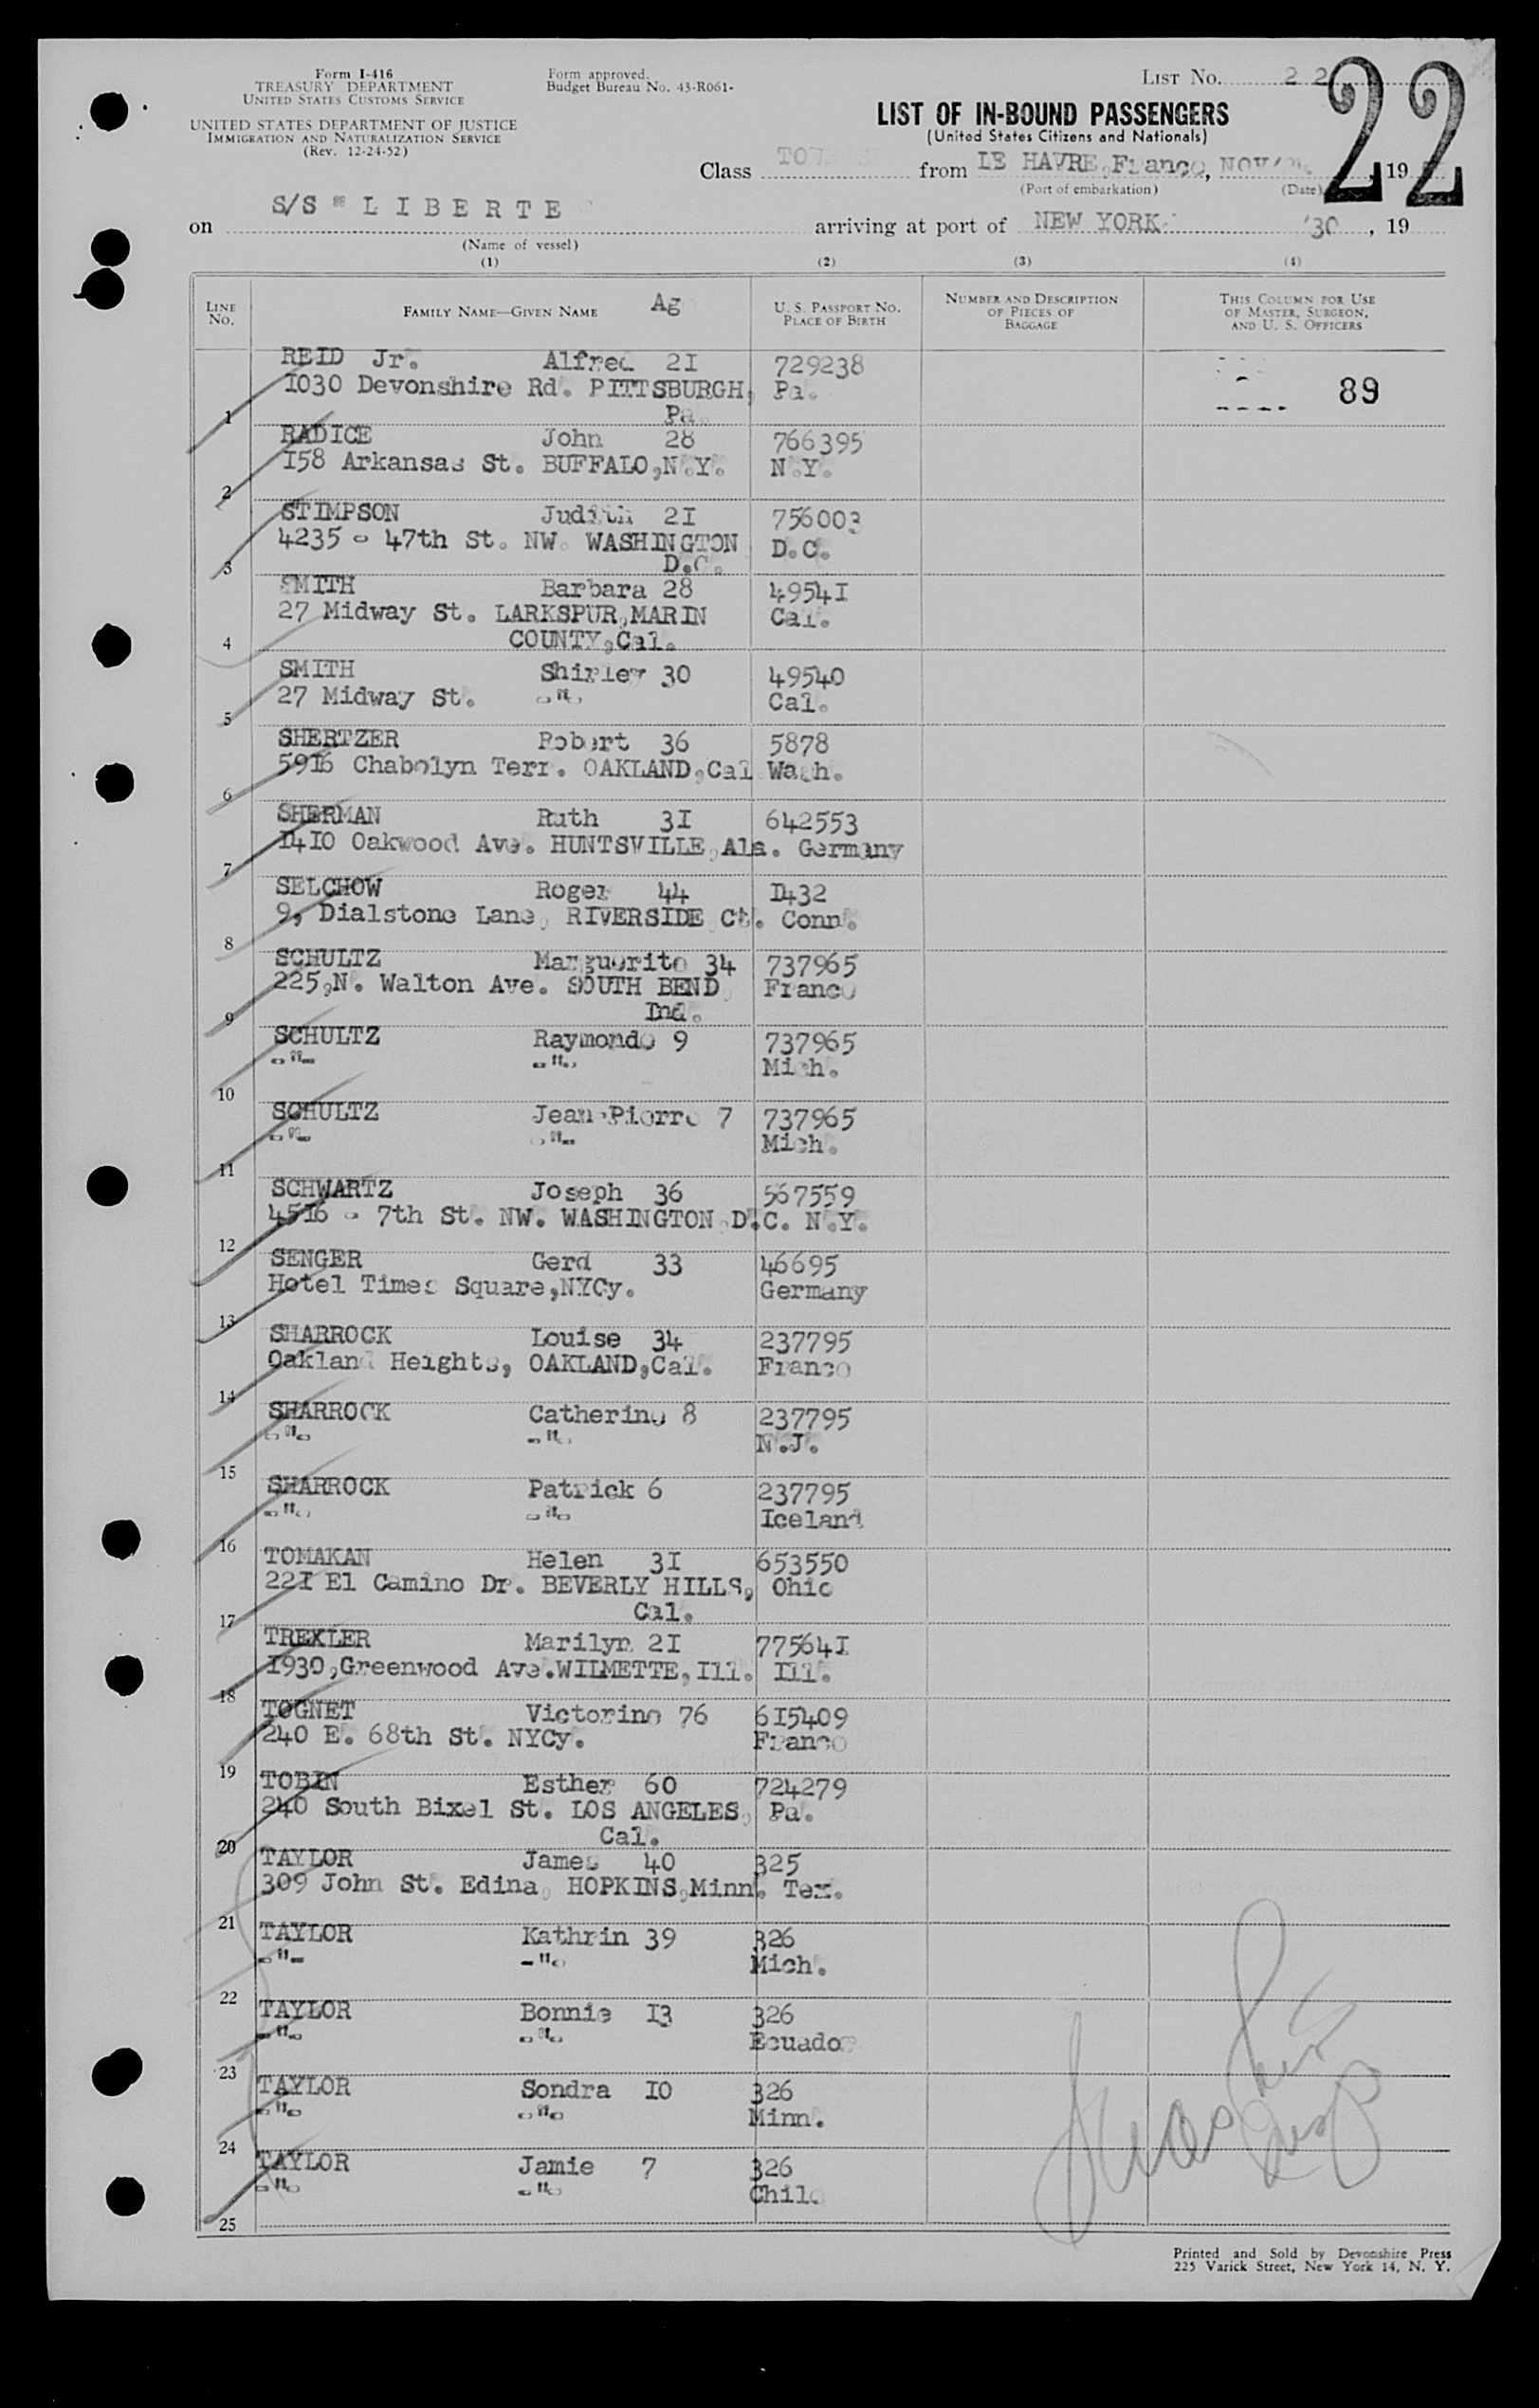 Form I-416
TREASURY DEPARTMENT
UNITED STATES CUSTOMS SERVICE
UNITED STATES DEPARTMENT OF JUSTICE
IMMIGRATION AND NATURALIZATION SERVICE
(Rev. 12-24-52)
Form approved.
Budget Bureau No. 43-R061-
LIST No. 22
22
LIST OF IN-BOUND PASSENGERS
(United States Citizens and Nationals)
Class from LE HAVRE, France, NOV , 19
(Port of embarkation) (Date)
on S/S " LIBERTE arriving at port of NEW YORK 30 , 19
(Name of vessel)
(1) (2) (3) (4)
LINE No. FAMILY NAME—GIVEN NAME Ag U. S. PASSPORT No. PLACE OF BIRTH NUMBER AND DESCRIPTION OF PIECES OF BAGGAGE THIS COLUMN FOR USE OF MASTER, SURGEON, AND U. S. OFFICERS
REID Jr. Alfred 2I 729238
I030 Devonshire Rd. PITTSBURGH, Pa. 89
1 Pa.
RADICE John 28 766395
I58 Arkansas St. BUFFALO,N.Y. N.Y.
2
STIMPSON Judith 2I 756003
4235 - 47th St. NW. WASHINGTON D.C.
3 D.C.
SMITH Barbara 28 4954I
27 Midway St. LARKSPUR,MARIN Cal.
4 COUNTY,Cal.
SMITH Shirley 30 49540
27 Midway St. -"- Cal.
5
SHERTZER Robert 36 5878
59I6 Chabolyn Terr. OAKLAND,Cal Wash.
6
SHERMAN Ruth 3I 642553
I4I0 Oakwood Ave. HUNTSVILLE,Ala. Germany
7
SELCHOW Roger 44 I432
9, Dialstone Lane, RIVERSIDE Ct. Conn.
8
SCHULTZ Marguerite 34 737965
225,N. Walton Ave. SOUTH BEND, France
9 Ind.
SCHULTZ Raymonde 9 737965
-"- -"- Mich.
10
SCHULTZ Jean-Pierre 7 737965
-"- -"- Mich.
11
SCHWARTZ Joseph 36 567559
45I6 - 7th St. NW. WASHINGTON D.C. N.Y.
12
SENGER Gerd 33 46695
Hotel Times Square,NYCy. Germany
13
SHARROCK Louise 34 237795
Oakland Heights, OAKLAND,Cal. France
14
SHARROCK Catherine 8 237795
-"- -"- N.J.
15
SHARROCK Patrick 6 237795
-"- -"- Iceland
16
TOMAKAN Helen 3I 653550
22I El Camino Dr. BEVERLY HILLS, Ohio
17 Cal.
TREXLER Marilyn 2I 77564I
I930,Greenwood Ave.WILMETTE,Ill. Ill.
18
TOGNET Victorine 76 6I5409
240 E. 68th St. NYCy. France
19
TOBIN Esther 60 724279
240 South Bixel St. LOS ANGELES, Pa.
20 Cal.
TAYLOR James 40 325
309 John St. Edina, HOPKINS,Minn. Tex.
21
TAYLOR Kathrin 39 326
-"- -"- Mich.
22
TAYLOR Bonnie I3 326
-"- -"- Ecuador
23
TAYLOR Sondra I0 326
-"- -"- Minn.
24
TAYLOR Jamie 7 326
-"- -"- Chile
25
Printed and Sold by Devonshire Press
225 Varick Street, New York 14, N. Y.